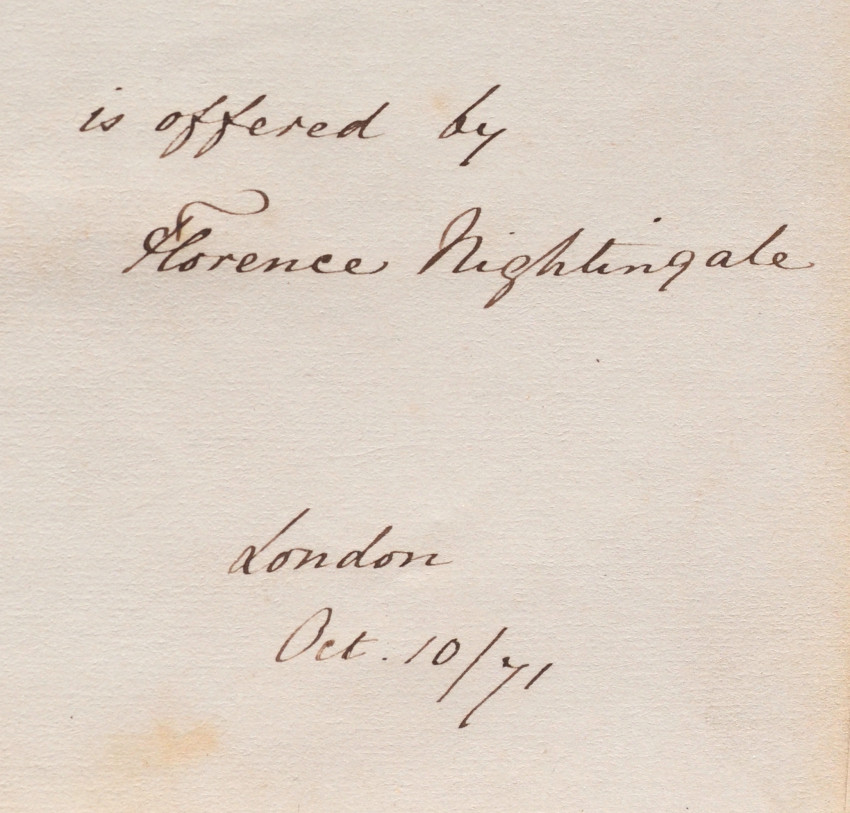 is offered by
Florence Nightingale
London
Oct. 10/71